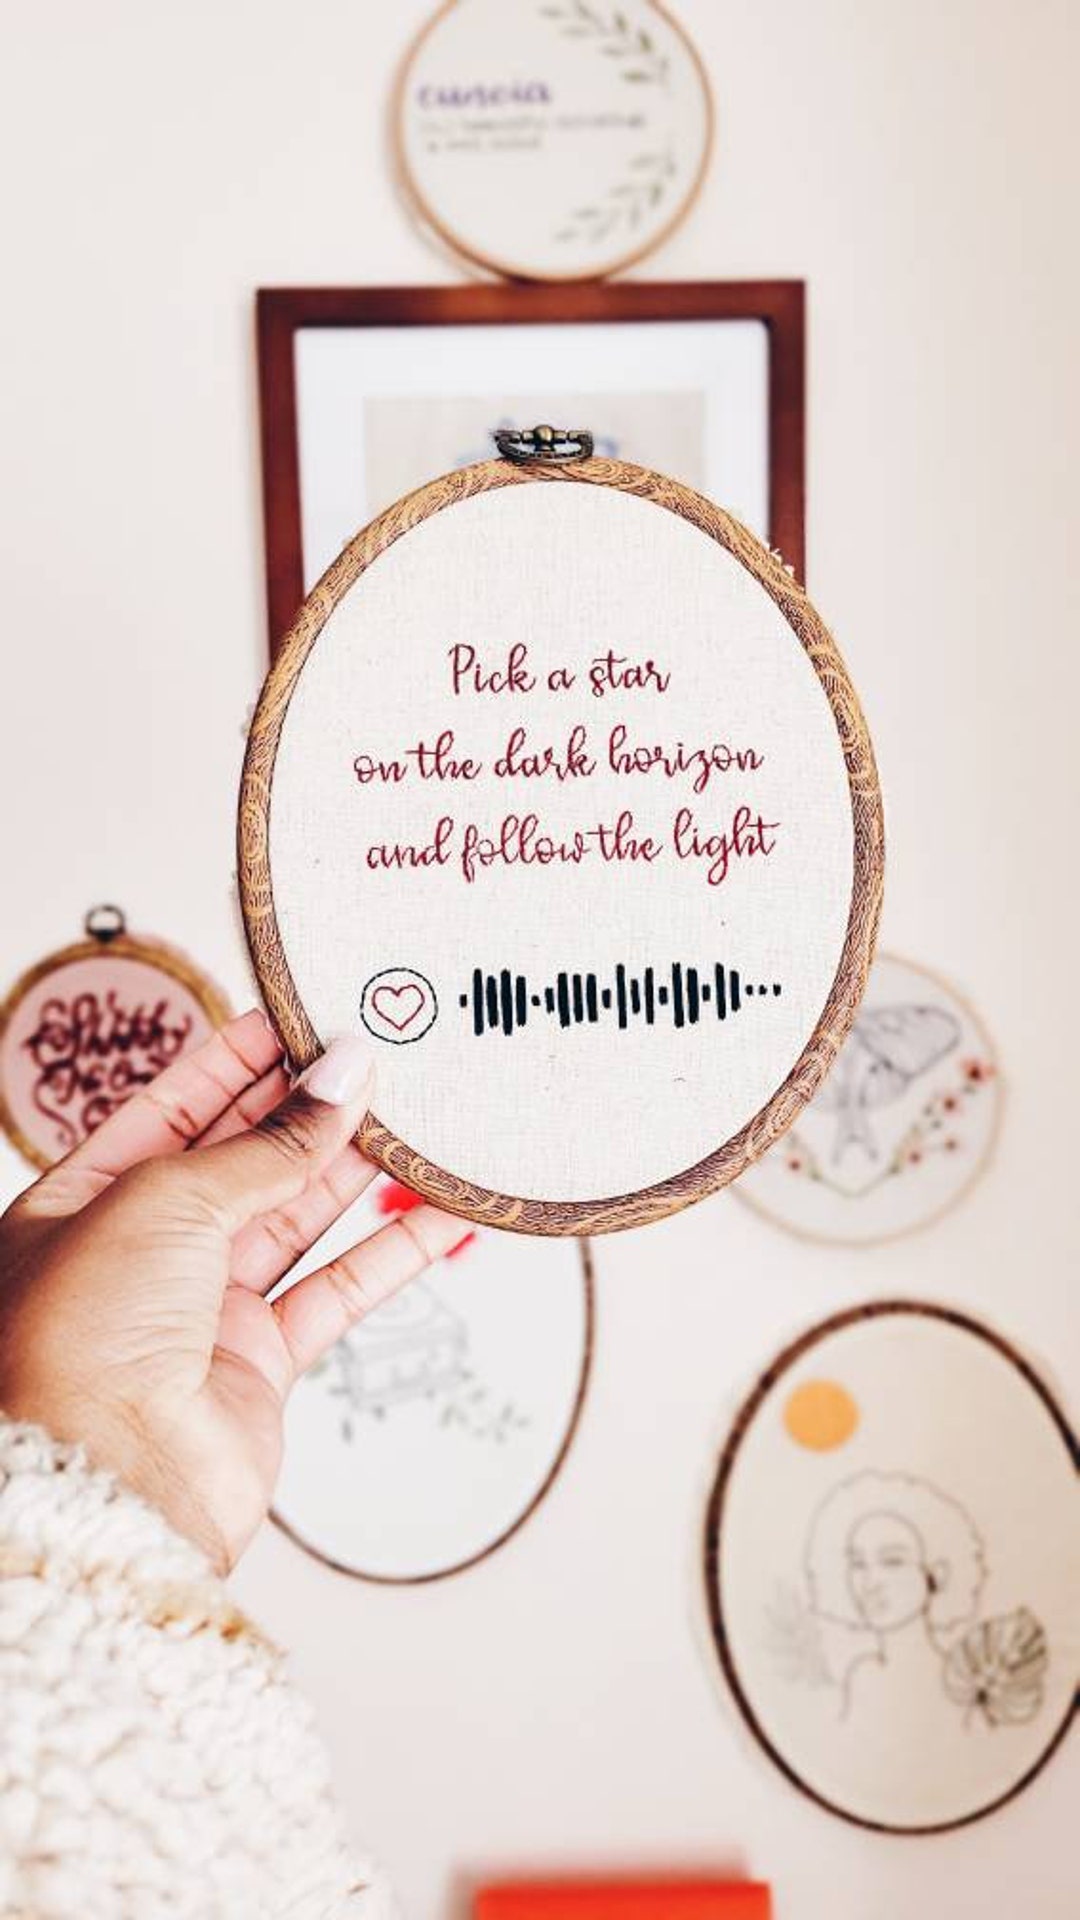 Pick a star
on the dark horizon
and follow the light